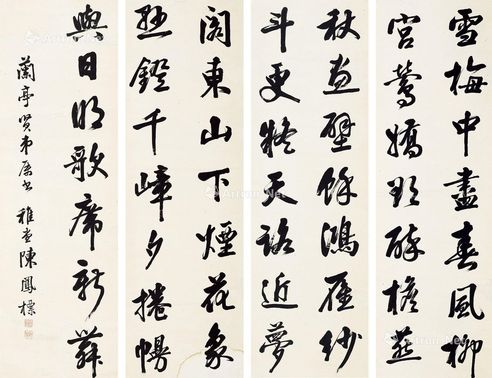 雪梅中盡春風柳
宮鶯嬌欲醉檐燕
秋畫壁餘鴻雁紗
斗更疑天路近夢
閣東山下煙花象
懸鐙千嶂夕捲幔
與日明歌席新舞
蘭亭賢弟屬書 陳鳳標